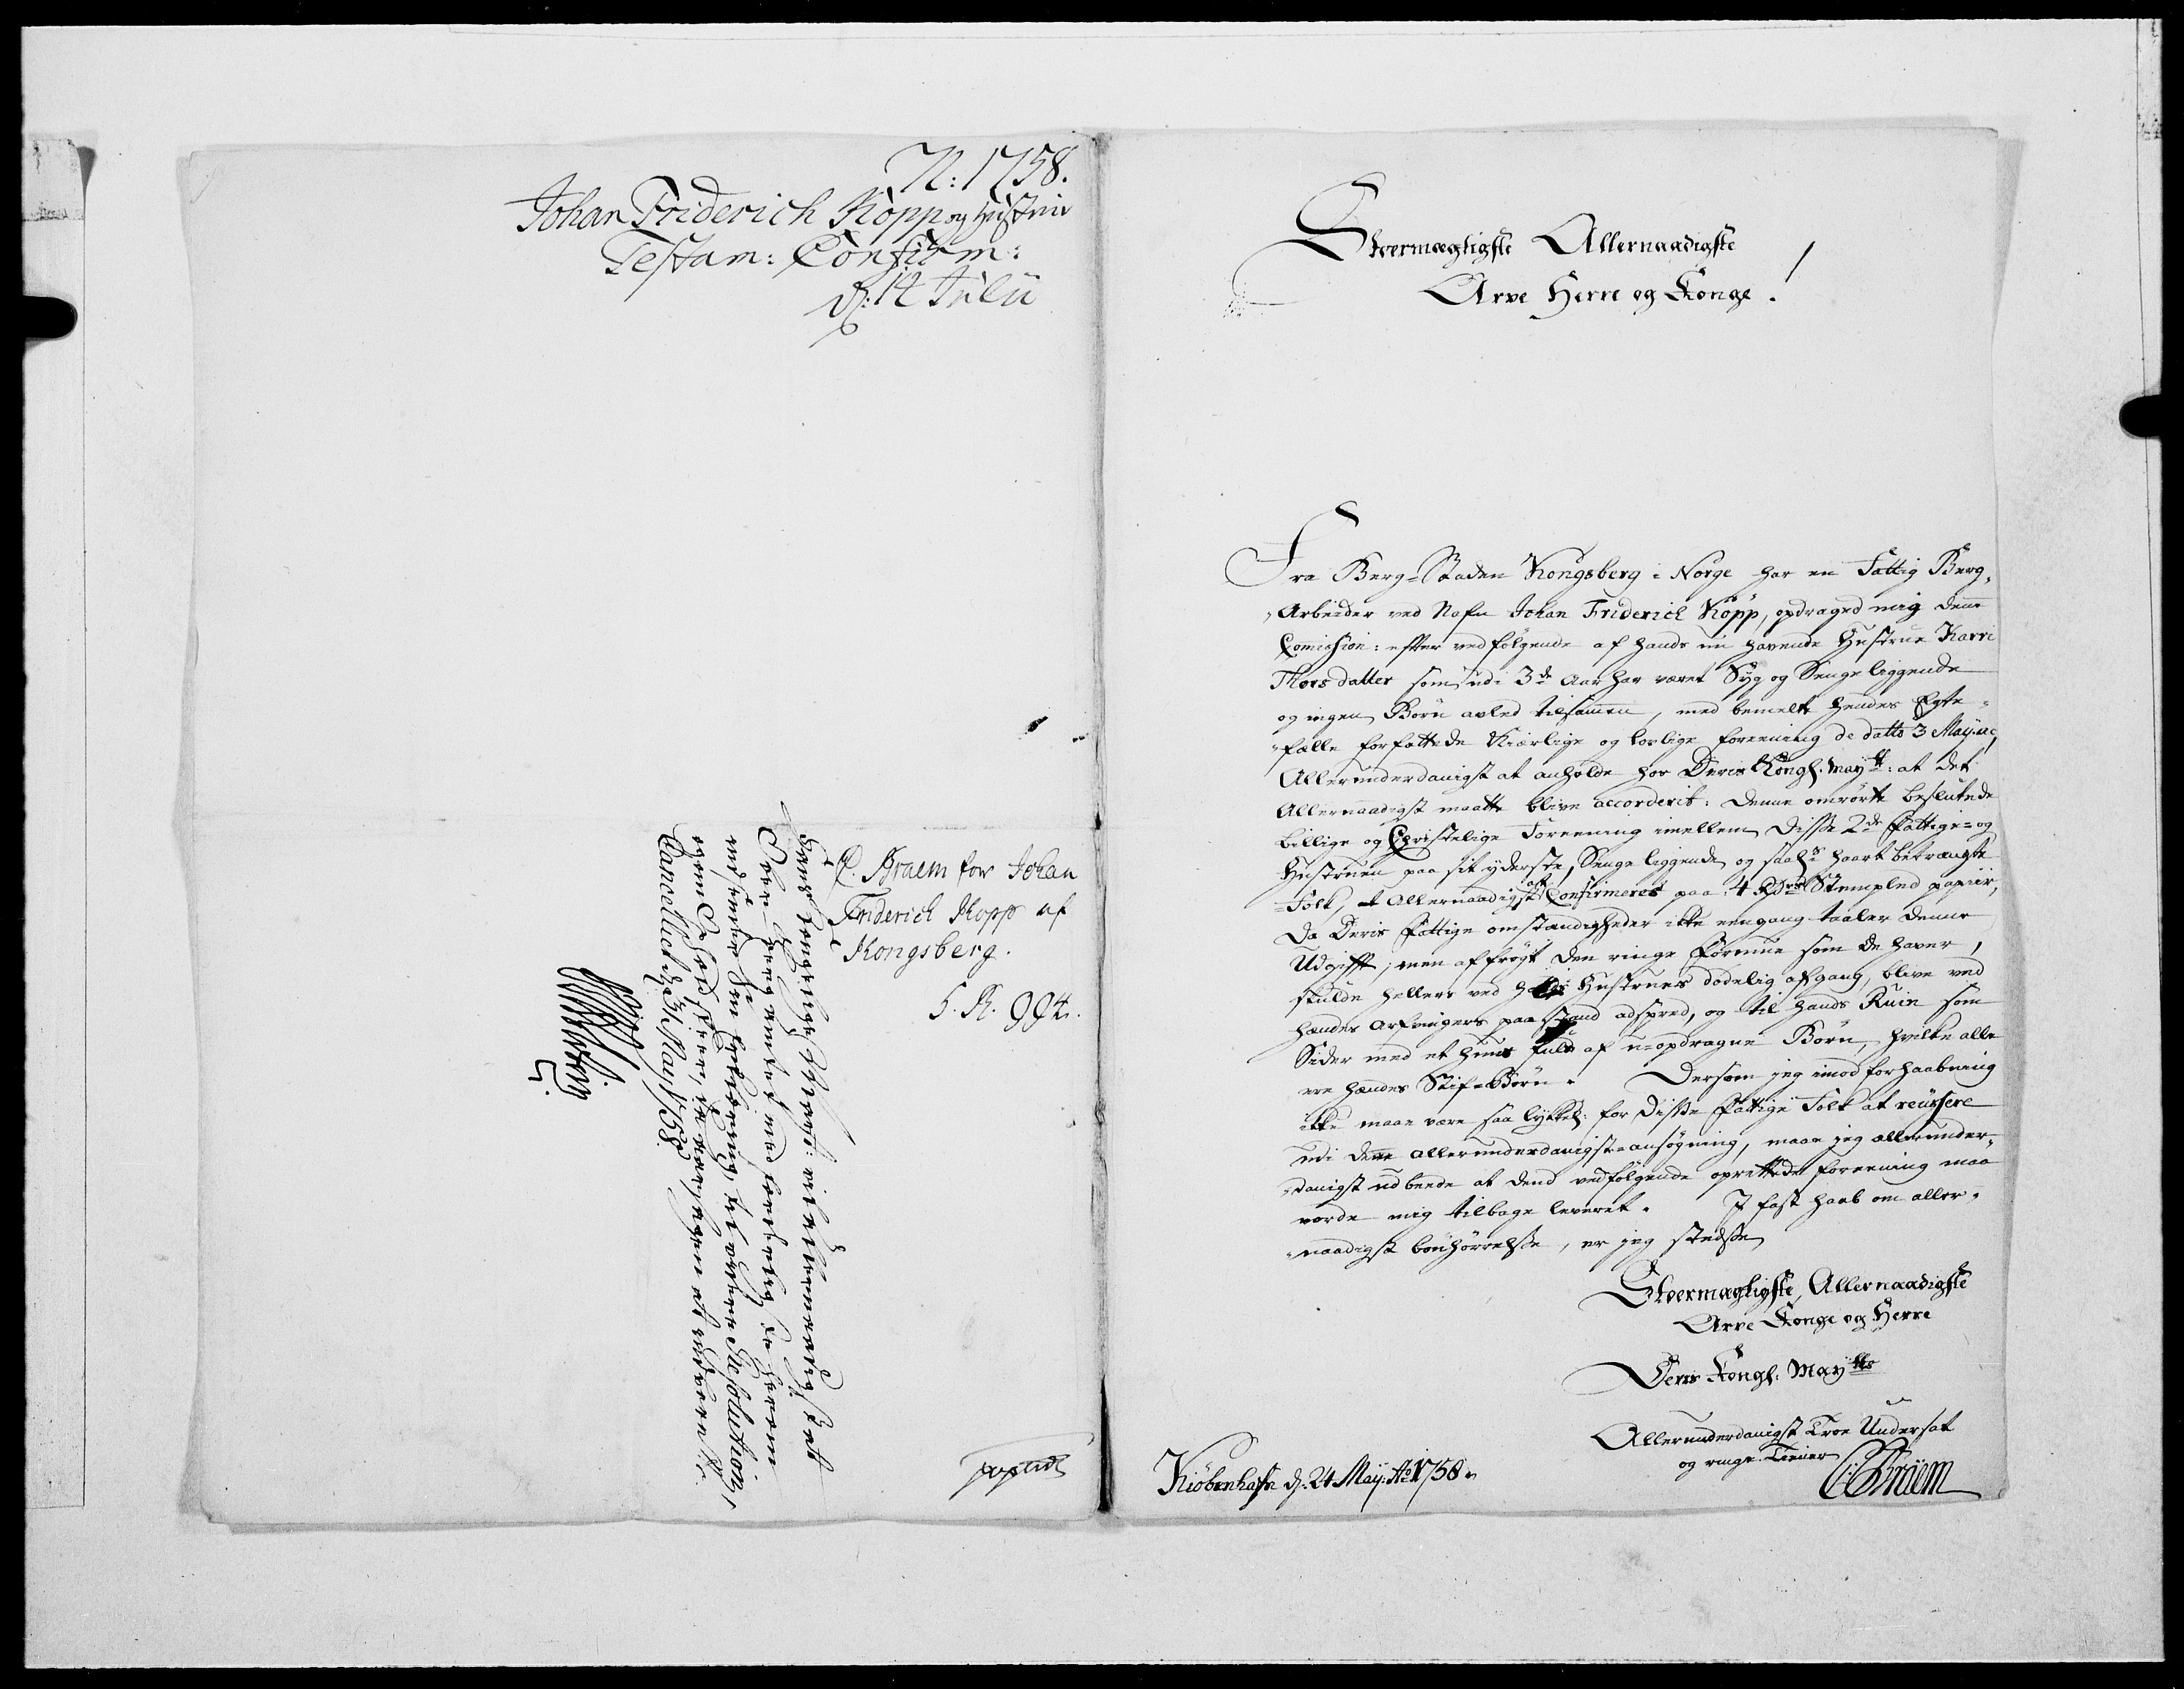 N: 1758.
Johan Friderich Kopp og Hustrue
Testam: Confirm:
d: 14 Julii
C. Braem for Johan
Friderich Kopp af
Kongsberg.
S. R. 994.
Hans Kongelige Mayst: vil allernaadigst at
Ober-Berg Amtet med foerderligste herom
indsender sin Erklæring, til videre Resolution,
Cancelliet d: May 1758.
Stormægtigste Allernaadigste
Arve Herre og Konge!
Fra Berg-Staden Kongsberg i Norge har en Fattig Berg-
Arbeider ved Nafn Johan Friderich Köpp, opdraged mig denne
Comission: efter vedfølgende af hands nu havende Hustrue Karri
Thorsdatter som udi 3de Aar har været Syg og Senge liggende
og ingen Børn avled tilsamen, med bemelte hendes Egte-
fælle forfattede Kiærlige og lovlige foreening de datto 3 May: a.c,
Allerunderdanigst at anholde hos Deris Kongl: Mayts: at det
Allernaadigst maatte blive accorderit: denne omrørte besluttede
billige og Christelige Foreening imellem disse 2de Fattige- og
Hustruen paa sit yderste, Senge liggende og saa haart betrængte
Folk, Allernaadigst at Confirmeres paa 4 Rdrs Stempled papiir,
da Deris Fattige omstændigheder ikke eengang taaler denne
Udgifft; men af frygt den ringe Formue som de haver,
skulde hellers ved Hustrues dødelig afgang, blive ved
hendes Arfvingers paastand adspred, og til hands Ruin som
Sider med et huus fuld af u-opdragne Børn, hvilke alle
ere hendes Stif-Børn. Dersom jeg imod forhaabning
ikke maae være saa lykkel: for disse Fattige Folk at reussere
udi denne allerunderdanigste ansøgning, maae jeg allerunder-
danigst udbeede at dend vedfølgende oprettede foreening maa
vorde mig tilbage leveret. I fast haab om aller-
naadigst bønhørrelsse, er jeg stedsse
Stormægtigste, Allernaadigste
Arve Konge og Herre
Deris Kongl: Mayts
Allerunderdanigst Troe Undersat
og ringe Tiener
C: Braem
Kiøbenhafn d: 24 May: Ao 1758.